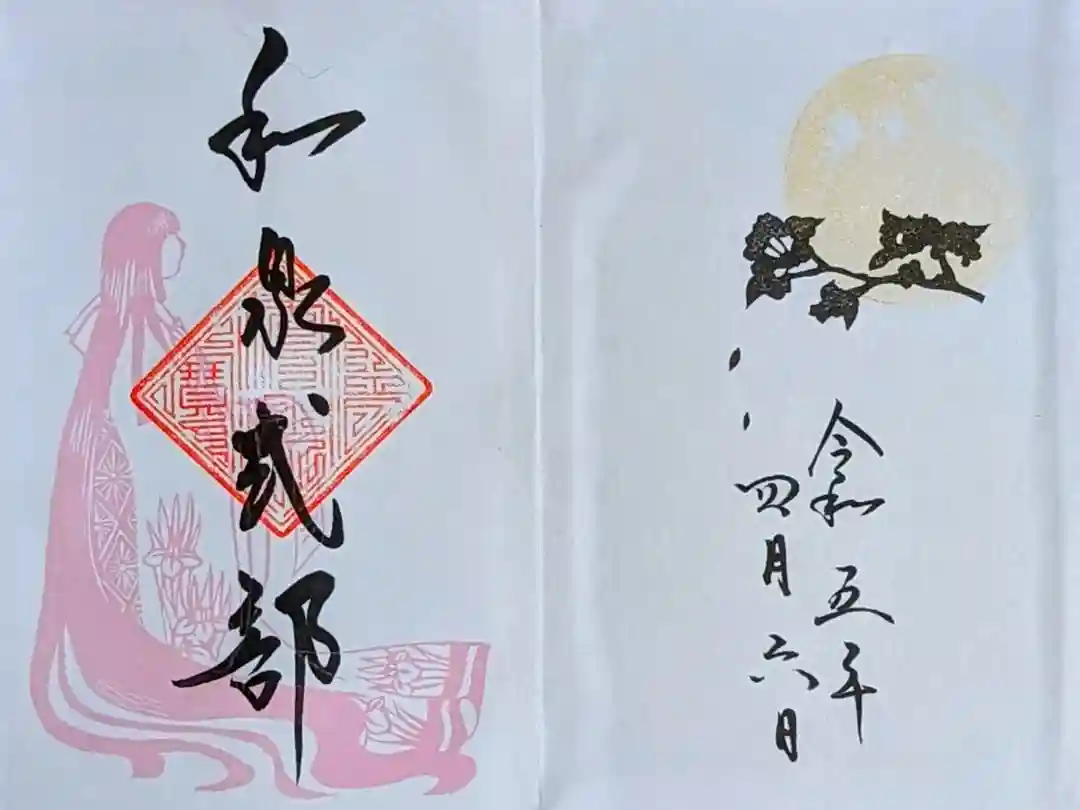 令和五年
四月六日
和泉式部